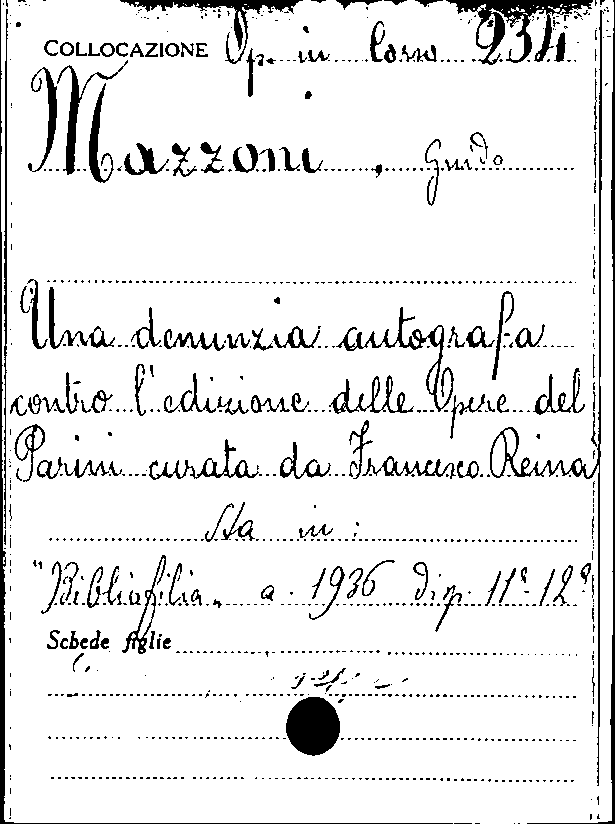 COLLOCAZIONE Op. in Corso 234
Mazzoni, Guido
Una denunzia autografa
contro l'edizione delle Opere del
Parini curata da Francesco Reina
Sta in:
"Bibliofilia" a. 1936 disp. 11ª-12ª
Schede figlie